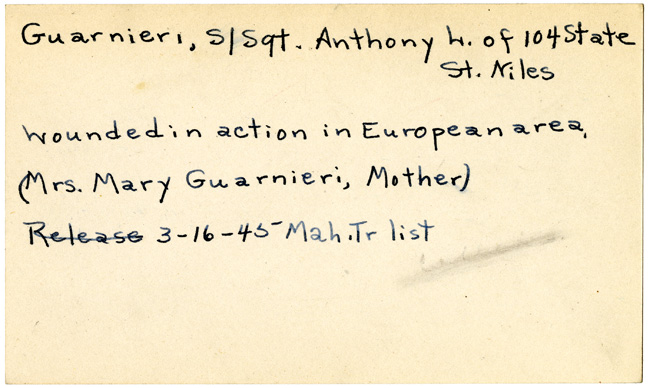 Guarnieri, S/Sgt. Anthony L. of 104 State
St. Niles
wounded in action in European area,
(Mrs. Mary Guarnieri, Mother)
Release 3-16-45 Mah. Tr list